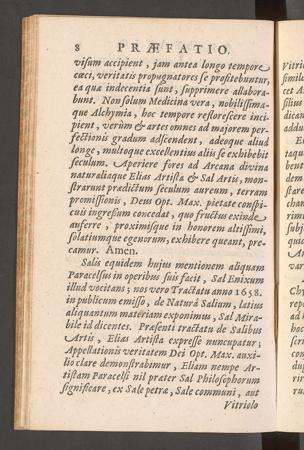 8 PRÆFATIO.
visum accipient, jam antea longo tempore
cœci, veritatis propugnatores se profitebuntur,
ea qua indecentia sunt, supprimere allabora-
bunt. Non solum Medicina vera, nobilissima-
que Alchymia, hoc tempore reflorescere inci-
pient, verùm & artes omnes ad majorem per-
fectionis gradum adscendent, adeoque aliud
longe, multoque excellentius aliis se exhibebit
seculum. Aperire fores ad Arcana divina
naturaliaque Elias Artista & Sal Artis, mon-
strarunt prædictum seculum aureum, terram
promissionis, Deus Opt. Max. pietate conspi-
cuis ingressum concedat, quo fructus exinde
auferre, proximisque in honorem altissimi,
solatiumque egenorum, exhibere queant, pre-
camur. Amen.
Salis equidem hujus mentionem aliquam
Paracelsus in operibus suis facit, Sal Enixum
illud vocitans; nos vero Tractatu anno 1658.
in publicum emisso, de Naturâ Salium, latius
aliquantum materiam exponimus, Sal Mira-
bile id dicentes. Præsenti tractatu de Salibus
Artis, Elias Artista expresse nuncupatur;
Appellationis veritatem Dei Opt. Max. auxi-
lio clare demonstrabimur, Eliam nempe Ar-
tistam Paracelsi nil præter Sal Philosophorum
significare, ex Sale petræ, Sale communi, aut
Vitriolo